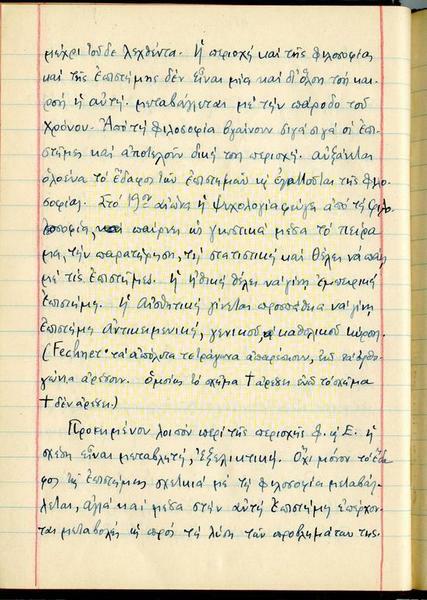 μέχρι τοῦδε λεχθέντα. Ἡ περιοχὴ καὶ τῆς φιλοσοφίας
καὶ τῆς ἐπιστήμης δὲν εἶναι μία καὶ δι' ὅλη τοῦ και-
ροῦ ἡ αὐτή. μεταβάλλεται μὲ τὴν πάροδο τοῦ
χρόνου. Ἀπὸ τὴ φιλοσοφία βγαίνουν σιγά σιγά οἱ ἐπι-
στῆμες καὶ ἀποτελοῦν δική των περιοχή. αὐξάνεται
ὁλοένα τὸ ἔδαφος τῶν ἐπιστημῶν κ' ἐλαττοῦται τῆς φιλο-
σοφίας. Στὸ 19ον αἰῶνα ἡ ψυχολογία φεύγει ἀπὸ τὴ φιλο-
σοφία, καὶ παίρνει ὡς γνωστικὰ μέσα τὸ πείρα-
μα, τὴν παρατήρηση, τὴ στατιστικὴ καὶ θέλει νὰ πάη
μὲ τὶς ἐπιστῆμες. Ἡ ἠθικὴ θέλει νὰ γίνη ἐμπειρικὴ
ἐπιστήμη. Ἡ αἰσθητικὴ γίνεται προσπάθεια νὰ γίνη
ἐπιστήμη ἀντικειμενική, γενικοῦ, καθολικοῦ κύρους.
(Fechner· τὰ ἀπόλυτα τετράγωνα ἀπαρέσκουν, ἐνῶ τὰ ὀρθο-
γώνια ἀρέσουν. Ὁμοίως τὸ σχῆμα † ἀρέσει ἐνῶ τὸ σχῆμα
✝ δὲν ἀρέσει.)
Προκειμένου λοιπὸν περὶ τῆς περιοχῆς Φ. κ' Ε. ἡ
σχέση εἶναι μεταβλητή, ἐξελικτική. Ὄχι μόνον τὸ ἔδα-
φος τῆς ἐπιστήμης σχετικὰ μὲ τὴ φιλοσοφία μεταβάλ-
λεται, ἀλλὰ καὶ μέσα στὴν αὐτὴ ἐπιστήμη ἐπέρχον-
ται μεταβολὲς ὡς πρὸς τὴ λύση τῶν προβλημάτων της.